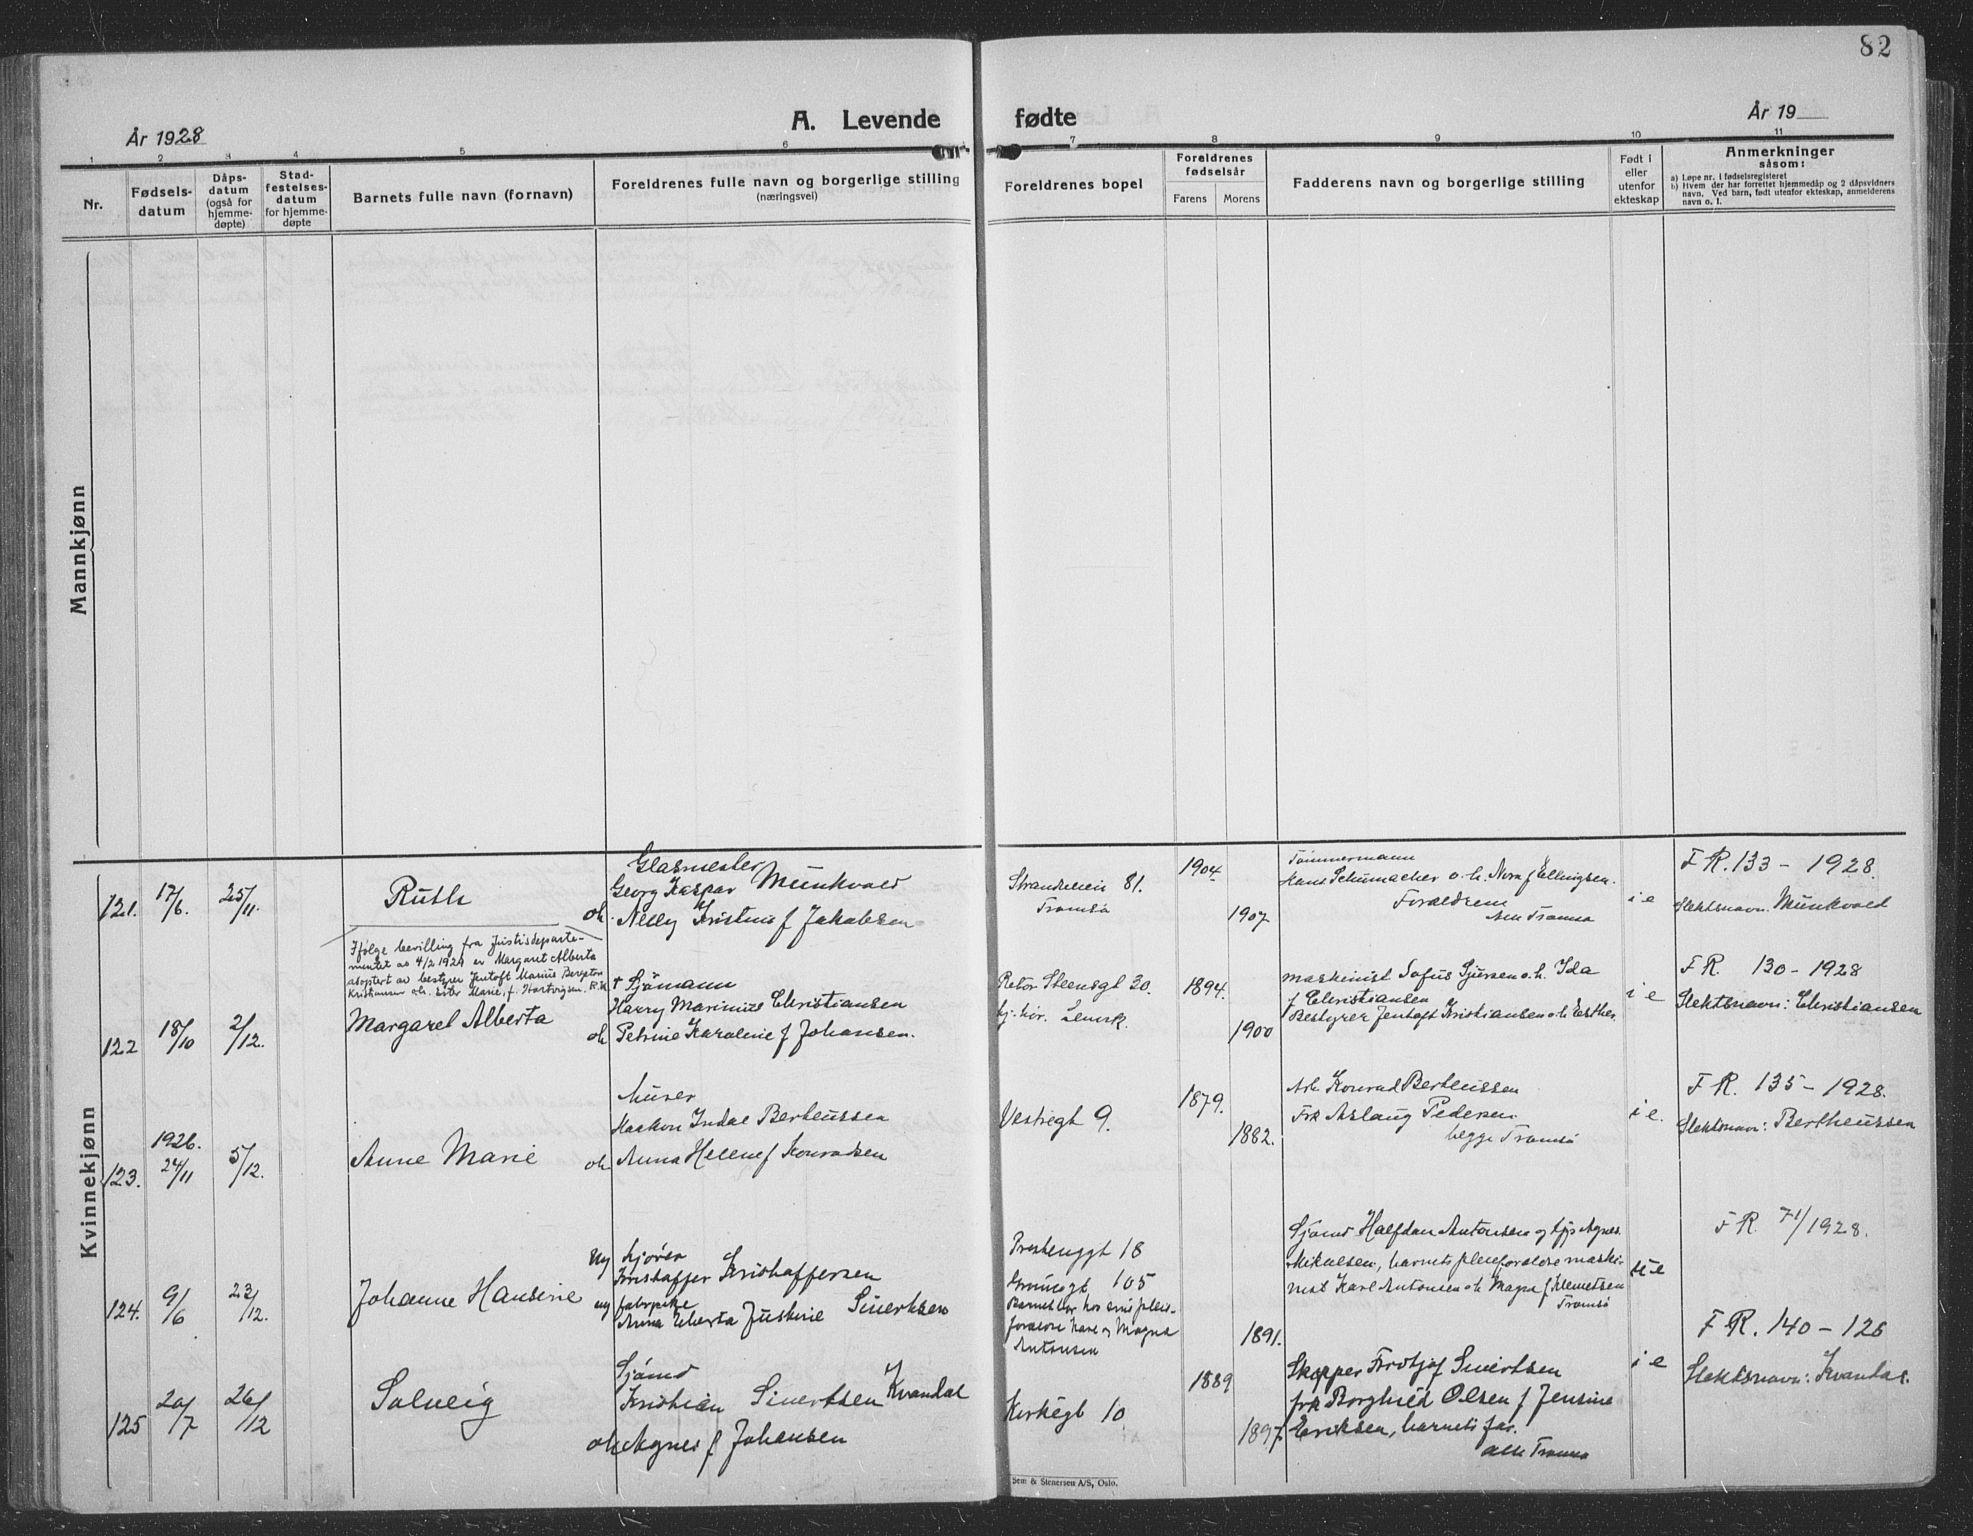 82
År 1928
A. Levende
fødte
År 19
1 2 3 4 5 6 7 8 9 10 11
Nr.
Fødsels-
datum
Dåps-
datum
(også for
hjemme-
døpte)
Stad-
festelses-
datum
for hjemme-
døpte
Barnets fulle navn (fornavn)
Foreldrenes fulle navn og borgerlige stilling
(næringsvei)
Foreldrenes bopel
Foreldrenes
fødselsår
Farens Morens
Fadderens navn og borgerlige stilling
Født i
eller
utenfor
ekteskap
Anmerkninger
såsom:
a) Løpe nr. i fødselsregisteret
b) Hvem der har forrettet hjemmedåp og 2 dåpsvidners
navn. Ved barn, født utenfor ekteskap, anmelderens
navn o. l.
Mannkjønn
Kvinnekjønn
121. 17/6. 25/11.
Ruth
Glasmester
Georg Kaspar Munkvold
oh. Nelly Kristine f Jakobsen
Strandveien 81.
Tromsø
1904.
1907
Tømmermann
Hans Schumacher o.h. Nora f Ellingsen.
Foreldrene
Alle Tromsø
i e
F R. 133 - 1928.
Slektsnavn: Munkvold
Ifølge bevilling fra Justisdeparte-
mentet av 4/2 1929 er Margaret Alberta
adoptert av bestyrer Jentoft Marius Bergeton
Kristiansen oh. Ester Marie, f. Hartvigsen. R.K
122 18/10 2/12.
Margaret Alberta
+ Sjømann
Harry Marinius Christiansen
oh Petrine Karoline f Johansen.
Rektor Steensgt 20.
1894.
1900
Maskinist Sofus Sjursen o.h. Ida
f Christiansen
Bestyrer Jentoft Kristiansen o.h Esther.
i e
F R. 130 - 1928
Slektsnavn: Christiansen
123. 1926. 24/11 5/12.
Anne Marie
Murer
Haakon Indal Bertheussen
oh Anna Helene f Konradsen
Vestregt 9.
1879.
1882.
Arb. Konrad Bertheussen
Frk Aslaug Pedersen
begge Tromsø
i e.
F R. 135 - 1928.
Slektsnavn: Bertheussen
124. 9/6 23/12.
Johanne Hansine
Ug kjører
Kristoffer Kristoffersen
ug fabrpike
Anna Justine Sivertsen
18
105
Barnet bor hos sine pleie-
foreldre Karl og Magna
Antonsen
1891.
Sjømd Halfdan Antonsen og Agnes
Mikalsen, barnets pleieforeldre maski-
nist Karl Antonsen o h Magna f Klemetsen
Tromsø
u e
F R 71/1928.
125 20/7 26/12
Solveig
Sjømd
Kristian Sivertsen Kvandal
oh Agnes f Johansen
Kirkegt 10
1889
1897.
Skipper Fridtjof Sivertsen
frk Borghild Olsen f Jensine
Eriksen, barnets far.
alle Tromsø
i e
F R. 140 - 126
Slektsnavn: Kvandal.
Sem & Stenersen A/S, Oslo.